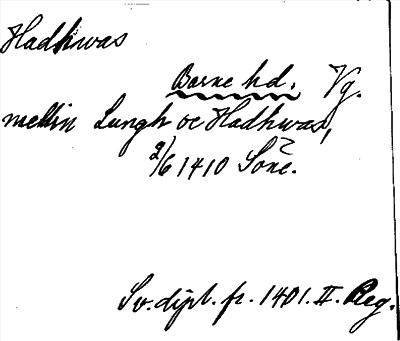 Hadhwas
Barne hd. Vg.
mellin Lungh oc Hadhwas,
2/6 1410 Sone.
Sv. dipl. fr. 1401. II. Reg.